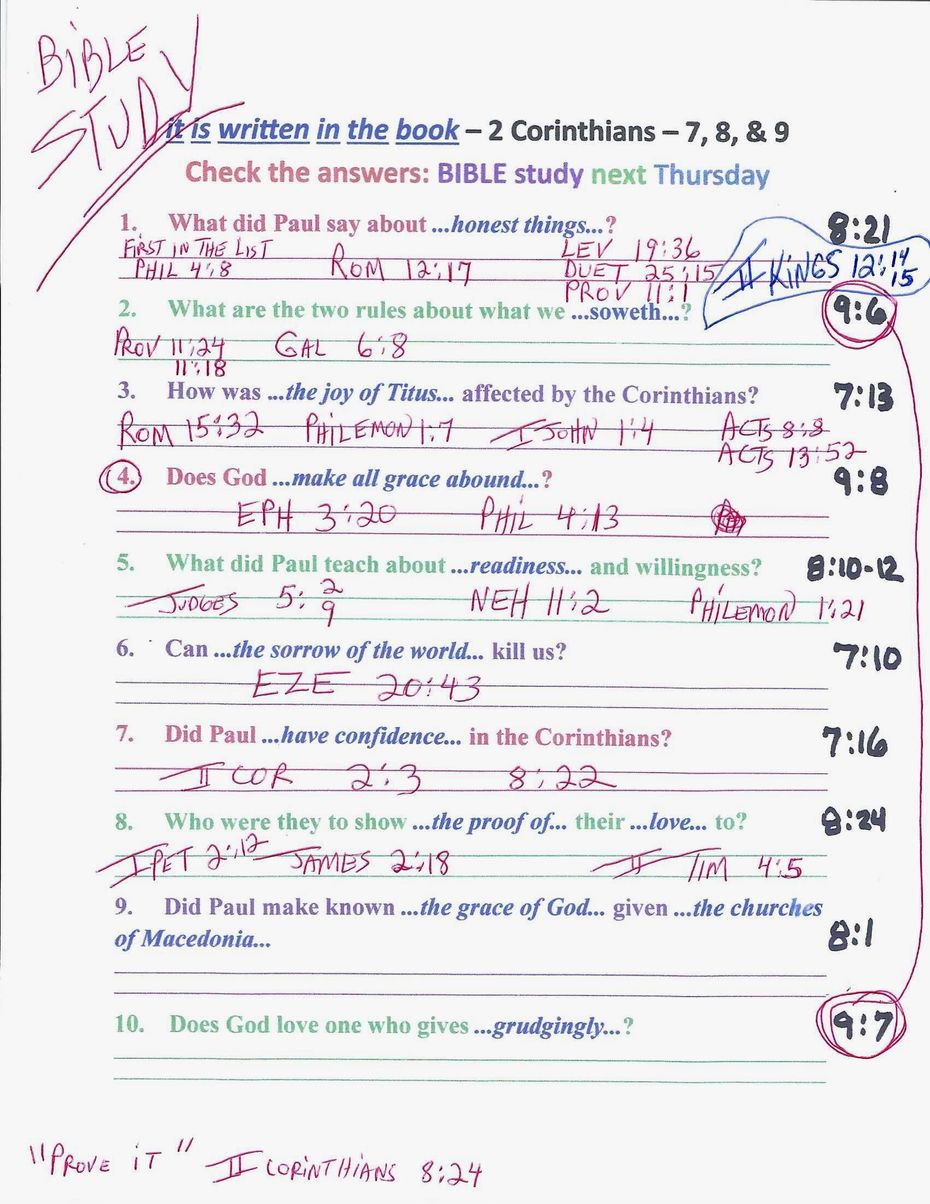 BIBLE
STUDY
it is written in the book – 2 Corinthians – 7, 8, & 9
Check the answers: BIBLE study next Thursday
1. What did Paul say about ...honest things...? 8:21
FIRST IN THE LIST
PHIL 4:8 ROM 12:17 LEV 19:36
DUET 25:15
PROV 11:1
II KINGS 12:14
15
2. What are the two rules about what we ...soweth...? 9:6
PROV 11:24 GAL 6:8
11:18
3. How was ...the joy of Titus... affected by the Corinthians? 7:13
ROM 15:32 PHILEMON 1:7 I JOHN 1:4 ACTS 8:8
ACTS 13:52
4. Does God ...make all grace abound...? 9:8
EPH 3:20 PHIL 4:13
5. What did Paul teach about ...readiness... and willingness? 8:10-12
JUDGES 5:2 NEH 11:2 PHILEMON 1:21
9
6. Can ...the sorrow of the world... kill us? 7:10
EZE 20:43
7. Did Paul ...have confidence... in the Corinthians? 7:16
II COR 2:3 8:22
8. Who were they to show ...the proof of... their ...love... to? 8:24
I PET 2:12 JAMES 2:18 II TIM 4:5
9. Did Paul make known ...the grace of God... given ...the churches
of Macedonia... 8:1
10. Does God love one who gives ...grudgingly...? 9:7
"PROVE IT" II CORINTHIANS 8:24